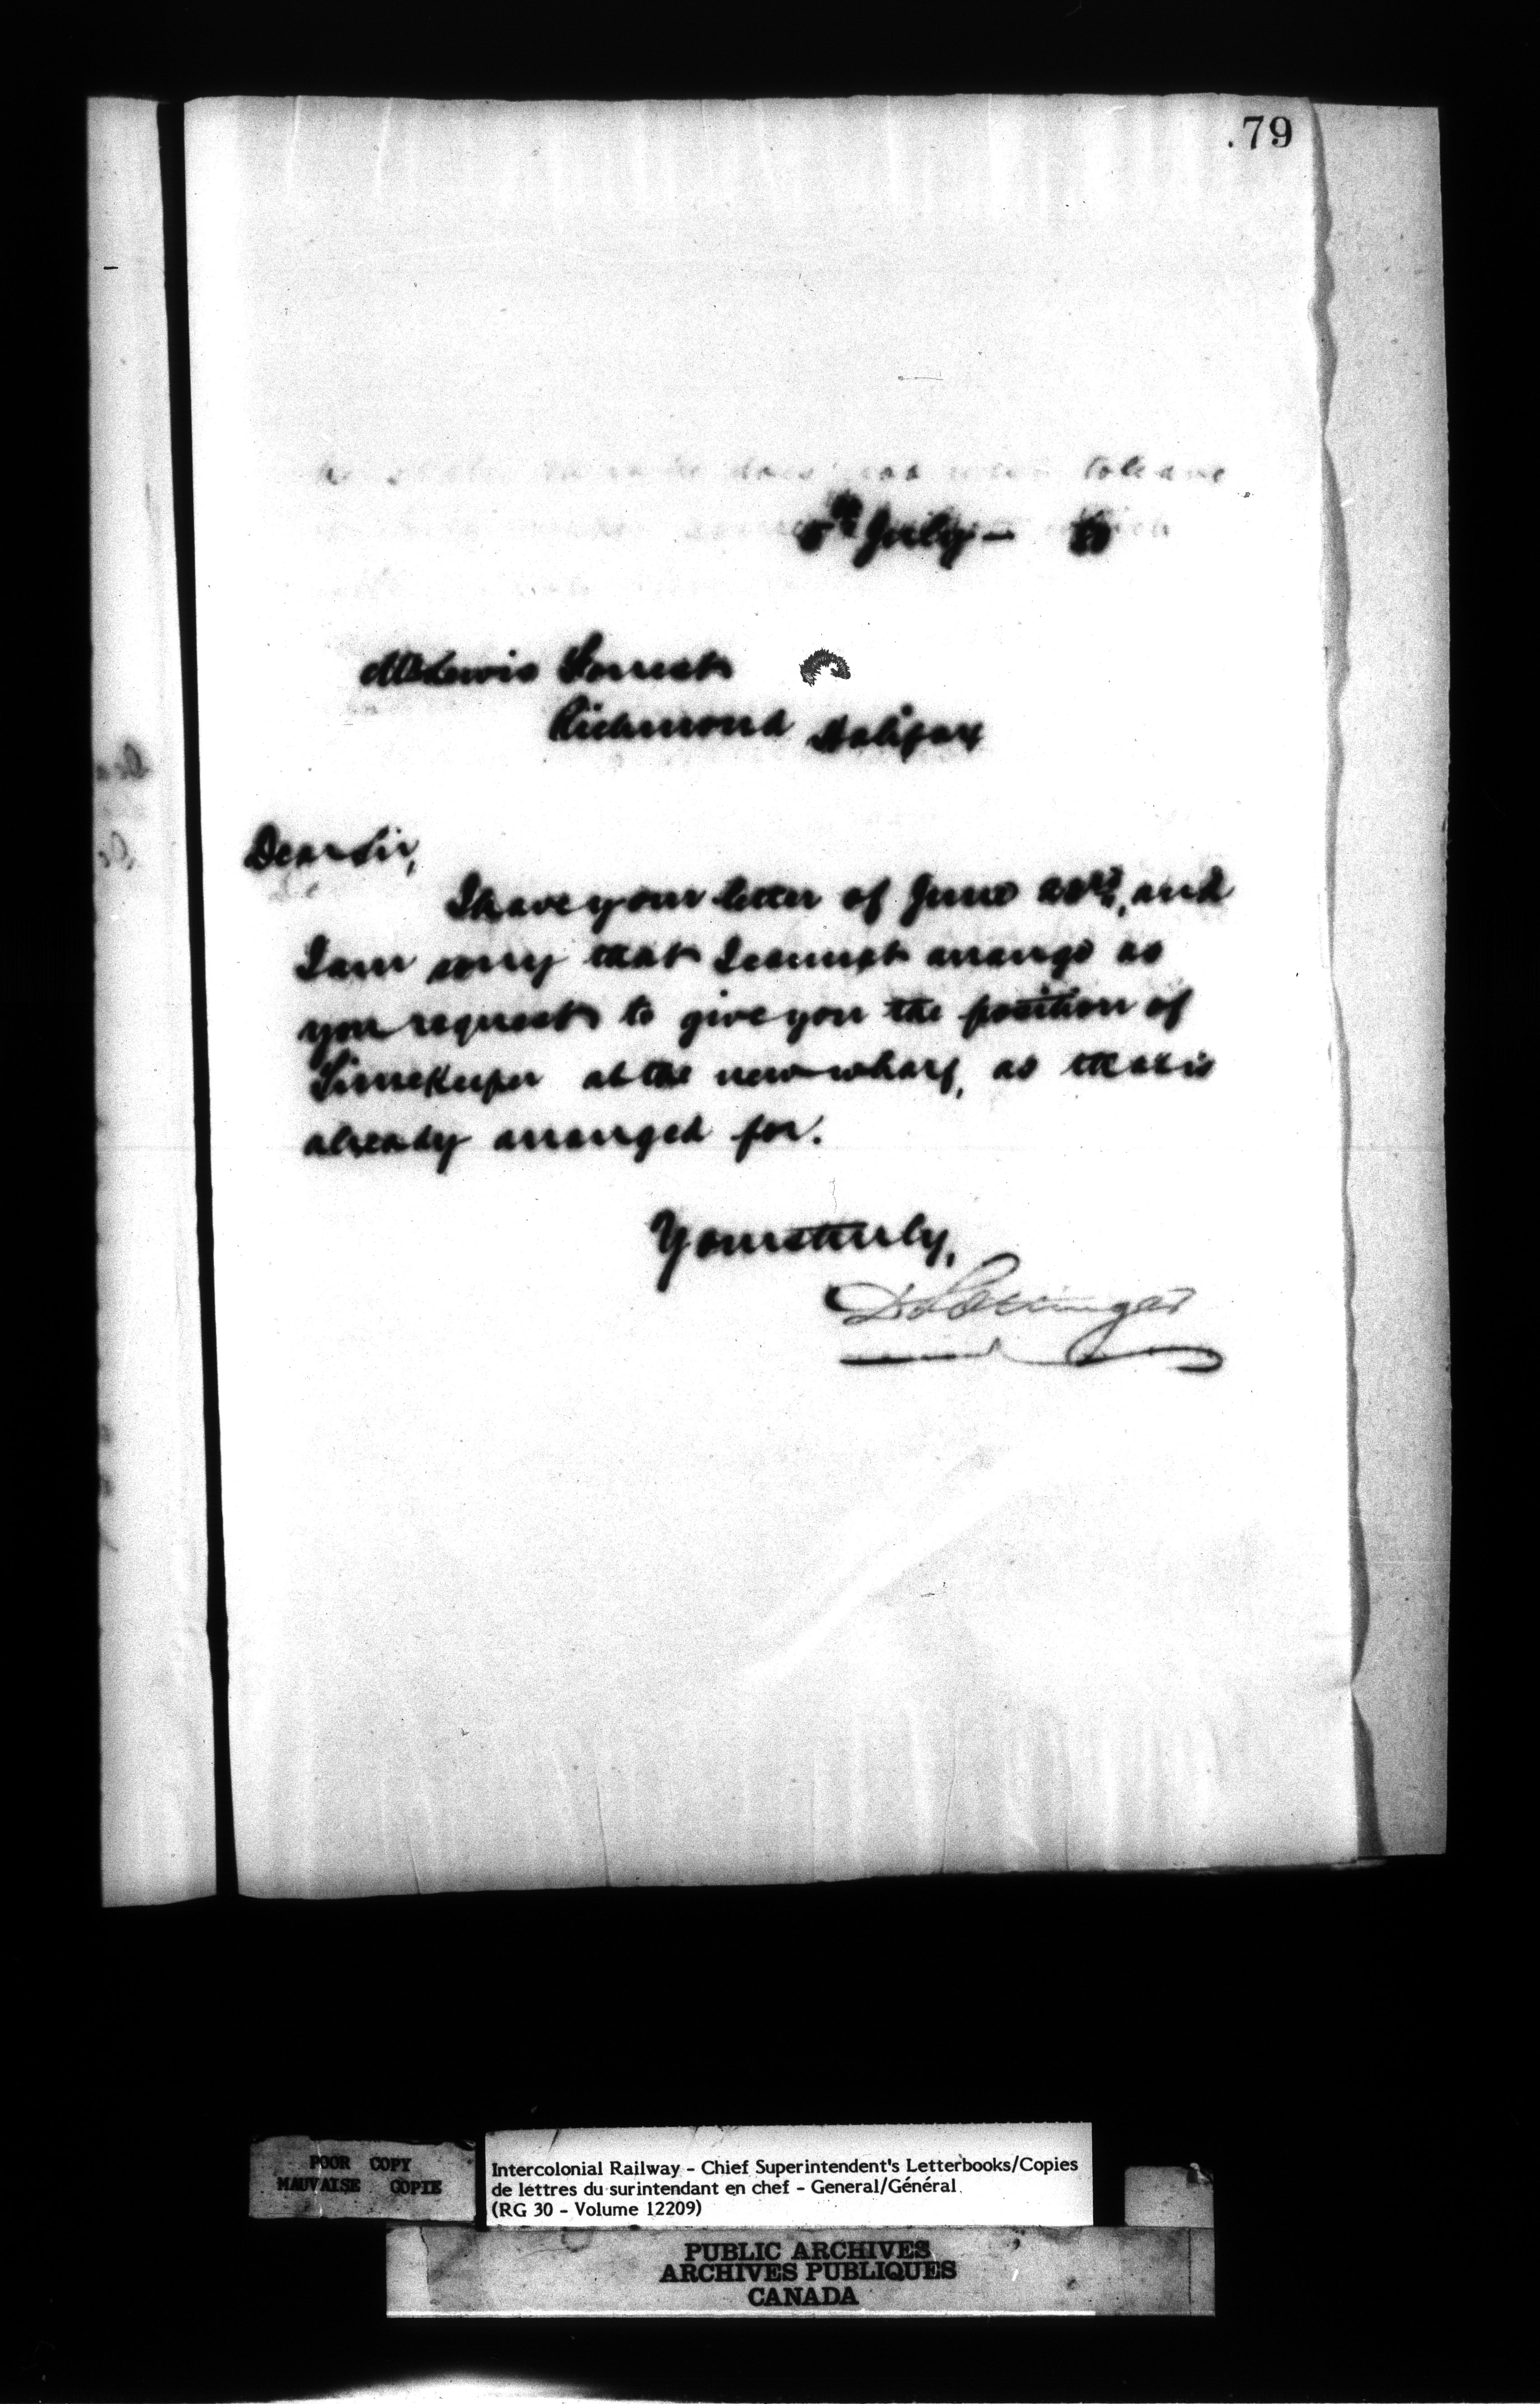 79
5th July –
Mr Lewis Forrest
Richmond Halifax
Dear Sir,
I have your letter of June and
I am sorry that I cannot arrange as
you request to give you the position of
Timekeeper at the new wharf, as that is
already arranged for.
Yours truly,
D Pottinger
POOR COPY
MAUVAISE COPIE
Intercolonial Railway - Chief Superintendent's Letterbooks/Copies
de lettres du surintendant en chef - General/Général
(RG 30 - Volume 12209)
PUBLIC ARCHIVES
ARCHIVES PUBLIQUES
CANADA